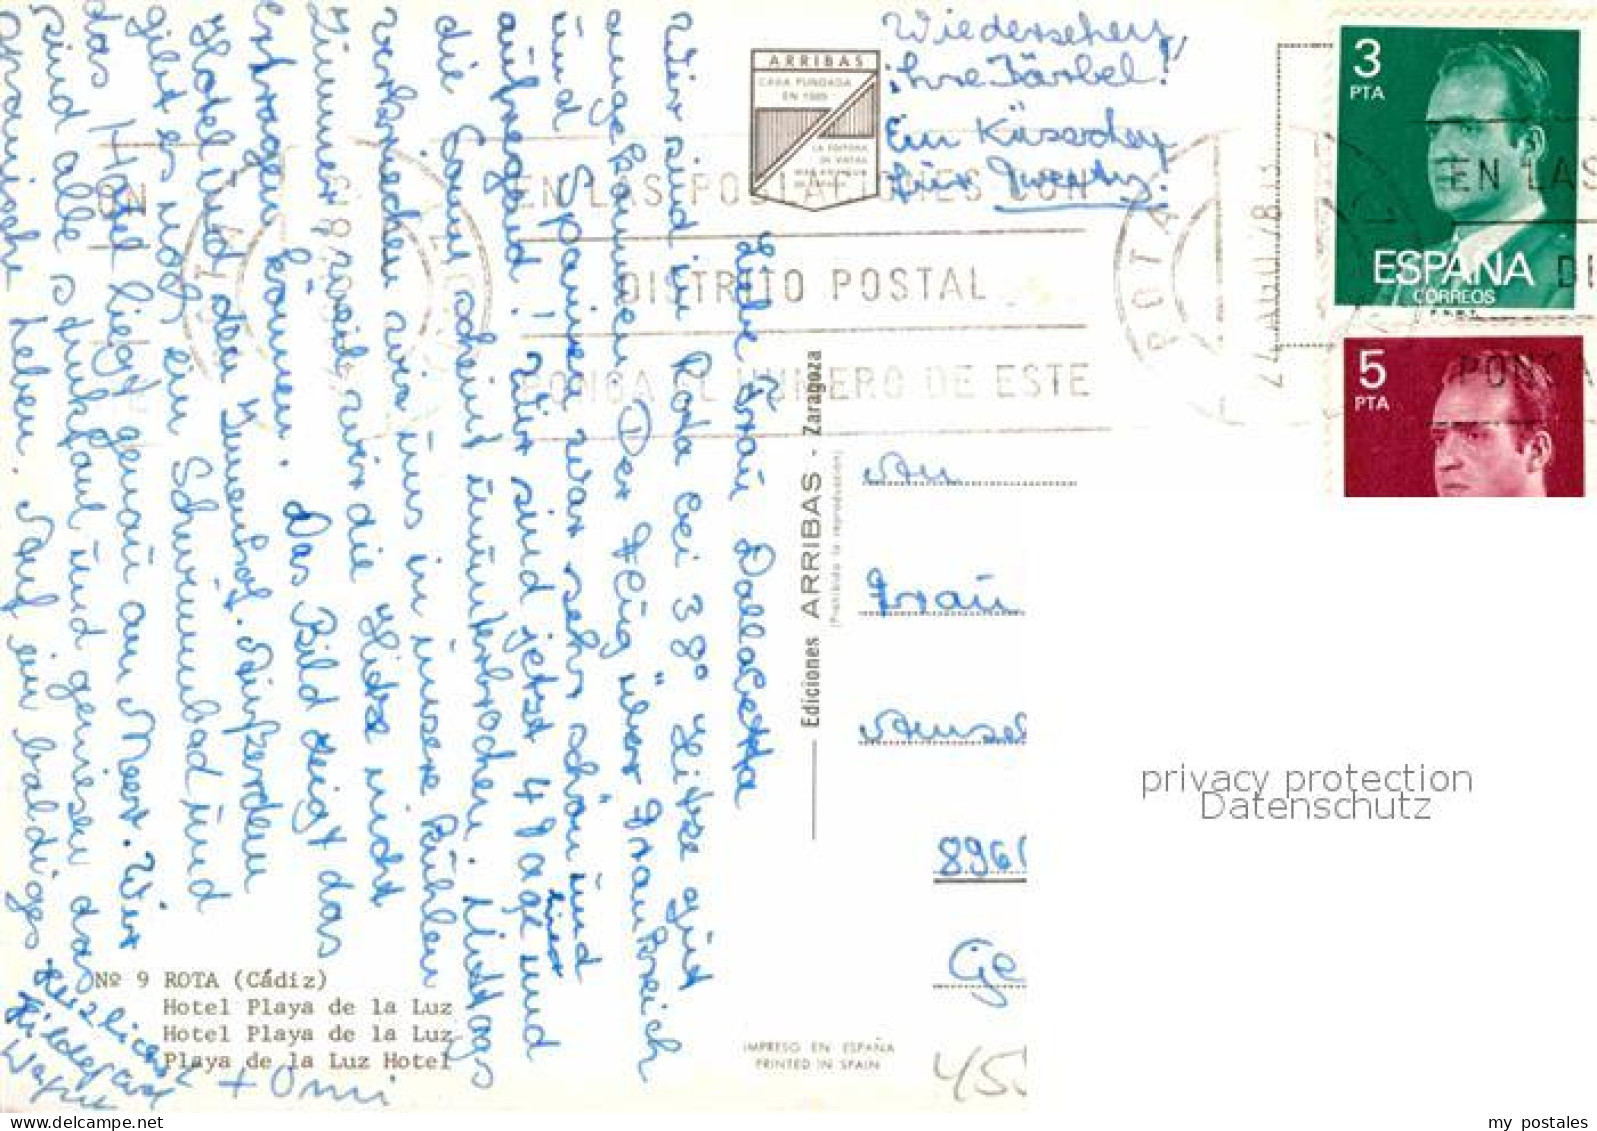 Liebe Frau Dallabetta
Wir sind in Rota bei 38° Hitze gut
angekommen. Der Flug über Frankreich
und Spanien war sehr schön und
aufregend! Wir sind jetzt 4 Tage hier und
die Sonne scheint ununterbrochen. Mittags
verkriechen wir uns in unsere kühlen
Zimmer, weil wir die Hitze nicht
ertragen können. Das Bild zeigt das
Hotel und den Innenhof. Außerdem
gibt es noch ein Schwimmbad und
das Hotel liegt genau am Meer. Wir
sind alle stinkfaul und genießen das
spanische Leben. Auf ein baldiges
Wiedersehen
ihre Bärbel!
Ein Küsschen
für
Herzlichst
Hildegard
+ Omi
ARRIBAS
CASA FUNDADA
LA EDITORA
DE VISTAS
3
PTA
ESPAÑA
CORREOS
F.N.M.T.
5
PTA
EN LAS POBLACIONES CON
DISTRITO POSTAL
PONGA EL NUMERO DE ESTE
ROTA
EN LAS
DI
PONGA
ON
Ediciones ARRIBAS - Zaragoza
(Prohibida la reproducción)
An
Frau
896
Ge
455
privacy protection
Datenschutz
Nº 9 ROTA (Cádiz)
Hotel Playa de la Luz
Hotel Playa de la Luz
Playa de la Luz Hotel
IMPRESO EN ESPAÑA
PRINTED IN SPAIN
my postales